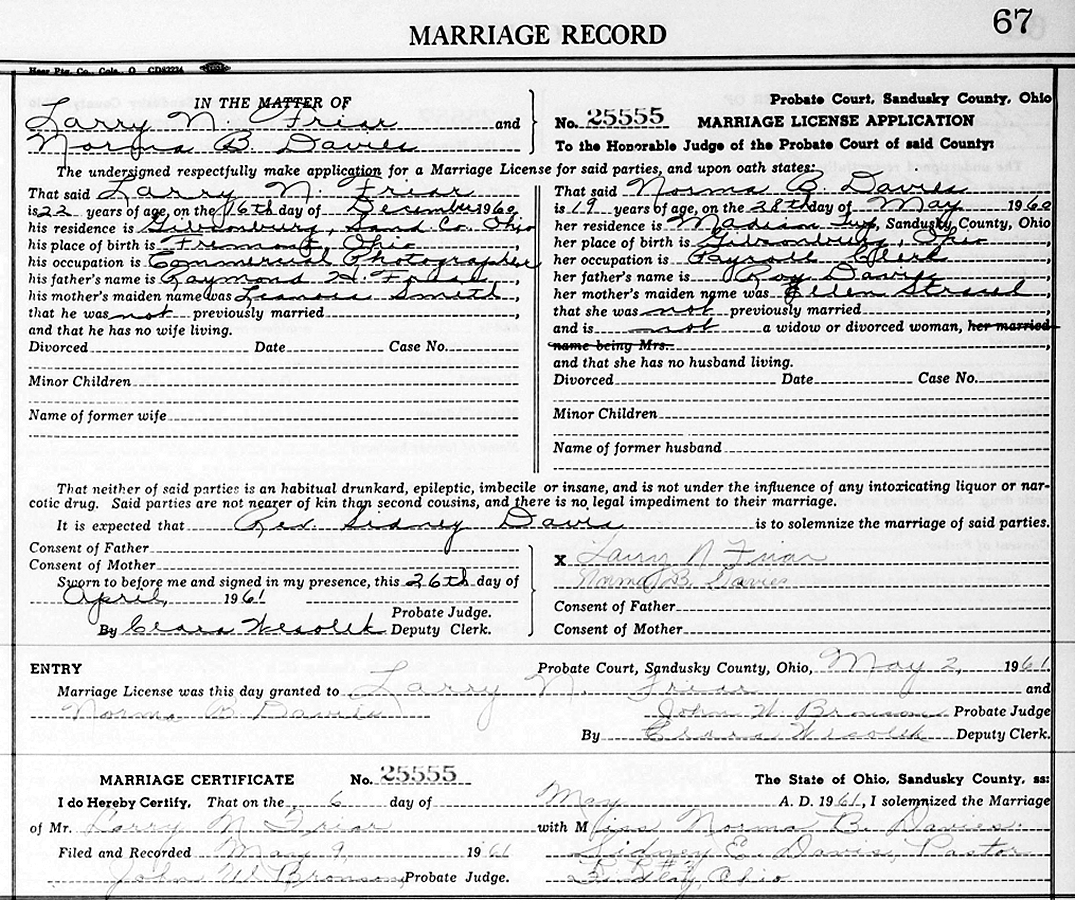 67
MARRIAGE RECORD
Heer Ptg. Co., Cols., O CD82224
IN THE MATTER OF
Larry N. Friar and
Norma B. Davies
Probate Court, Sandusky County, Ohio
No. 25555 MARRIAGE LICENSE APPLICATION
To the Honorable Judge of the Probate Court of said County:
The undersigned respectfully make application for a Marriage License for said parties, and upon oath states:
That said Larry N. Friar
is 22 years of age, on the 16th day of December 1960
his residence is Gibsonburg, Sand. Co. Ohio
his place of birth is Fremont, Ohio
his occupation is Commercial Photographer
his father's name is Raymond H Friar,
his mother's maiden name was Smith,
that he was not previously married,
and that he has no wife living.
Divorced Date Case No.
Minor Children
Name of former wife
That said Norma B Davies
is 19 years of age, on the 28th day of May 1960
her residence is Madison Twp, Sandusky County, Ohio
her place of birth is Gibsonburg, Ohio
her occupation is Payroll Clerk
her father's name is Roy Davies
her mother's maiden name was Ellen,
that she was not previously married,
and is not a widow or divorced woman, her married
name being Mrs.,
and that she has no husband living.
Divorced Date Case No.
Minor Children
Name of former husband
That neither of said parties is an habitual drunkard, epileptic, imbecile or insane, and is not under the influence of any intoxicating liquor or nar-
cotic drug. Said parties are not nearer of kin than second cousins, and there is no legal impediment to their marriage.
It is expected that Rev. Sidney Davis is to solemnize the marriage of said parties.
Consent of Father
Consent of Mother
Sworn to before me and signed in my presence, this 26th day of
April, 1961
Probate Judge.
By Clara Wesolek Deputy Clerk.
X Larry N Friar
Norma B. Davies
Consent of Father
Consent of Mother
ENTRY Probate Court, Sandusky County, Ohio, May 2, 1961.
Marriage License was this day granted to Larry N. Friar and
Norma B Davies John W. Bronson Probate Judge
By Clara Wesolek Deputy Clerk.
MARRIAGE CERTIFICATE No. 25555 The State of Ohio, Sandusky County, ss:
I do Hereby Certify, That on the 6 day of May A. D. 1961, I solemnized the Marriage
of Mr. Larry N Friar with Miss Norma B. Davies
Filed and Recorded May 9, 1961 Sidney E. Davis, Pastor
John W. Bronson, Probate Judge. Findlay, Ohio